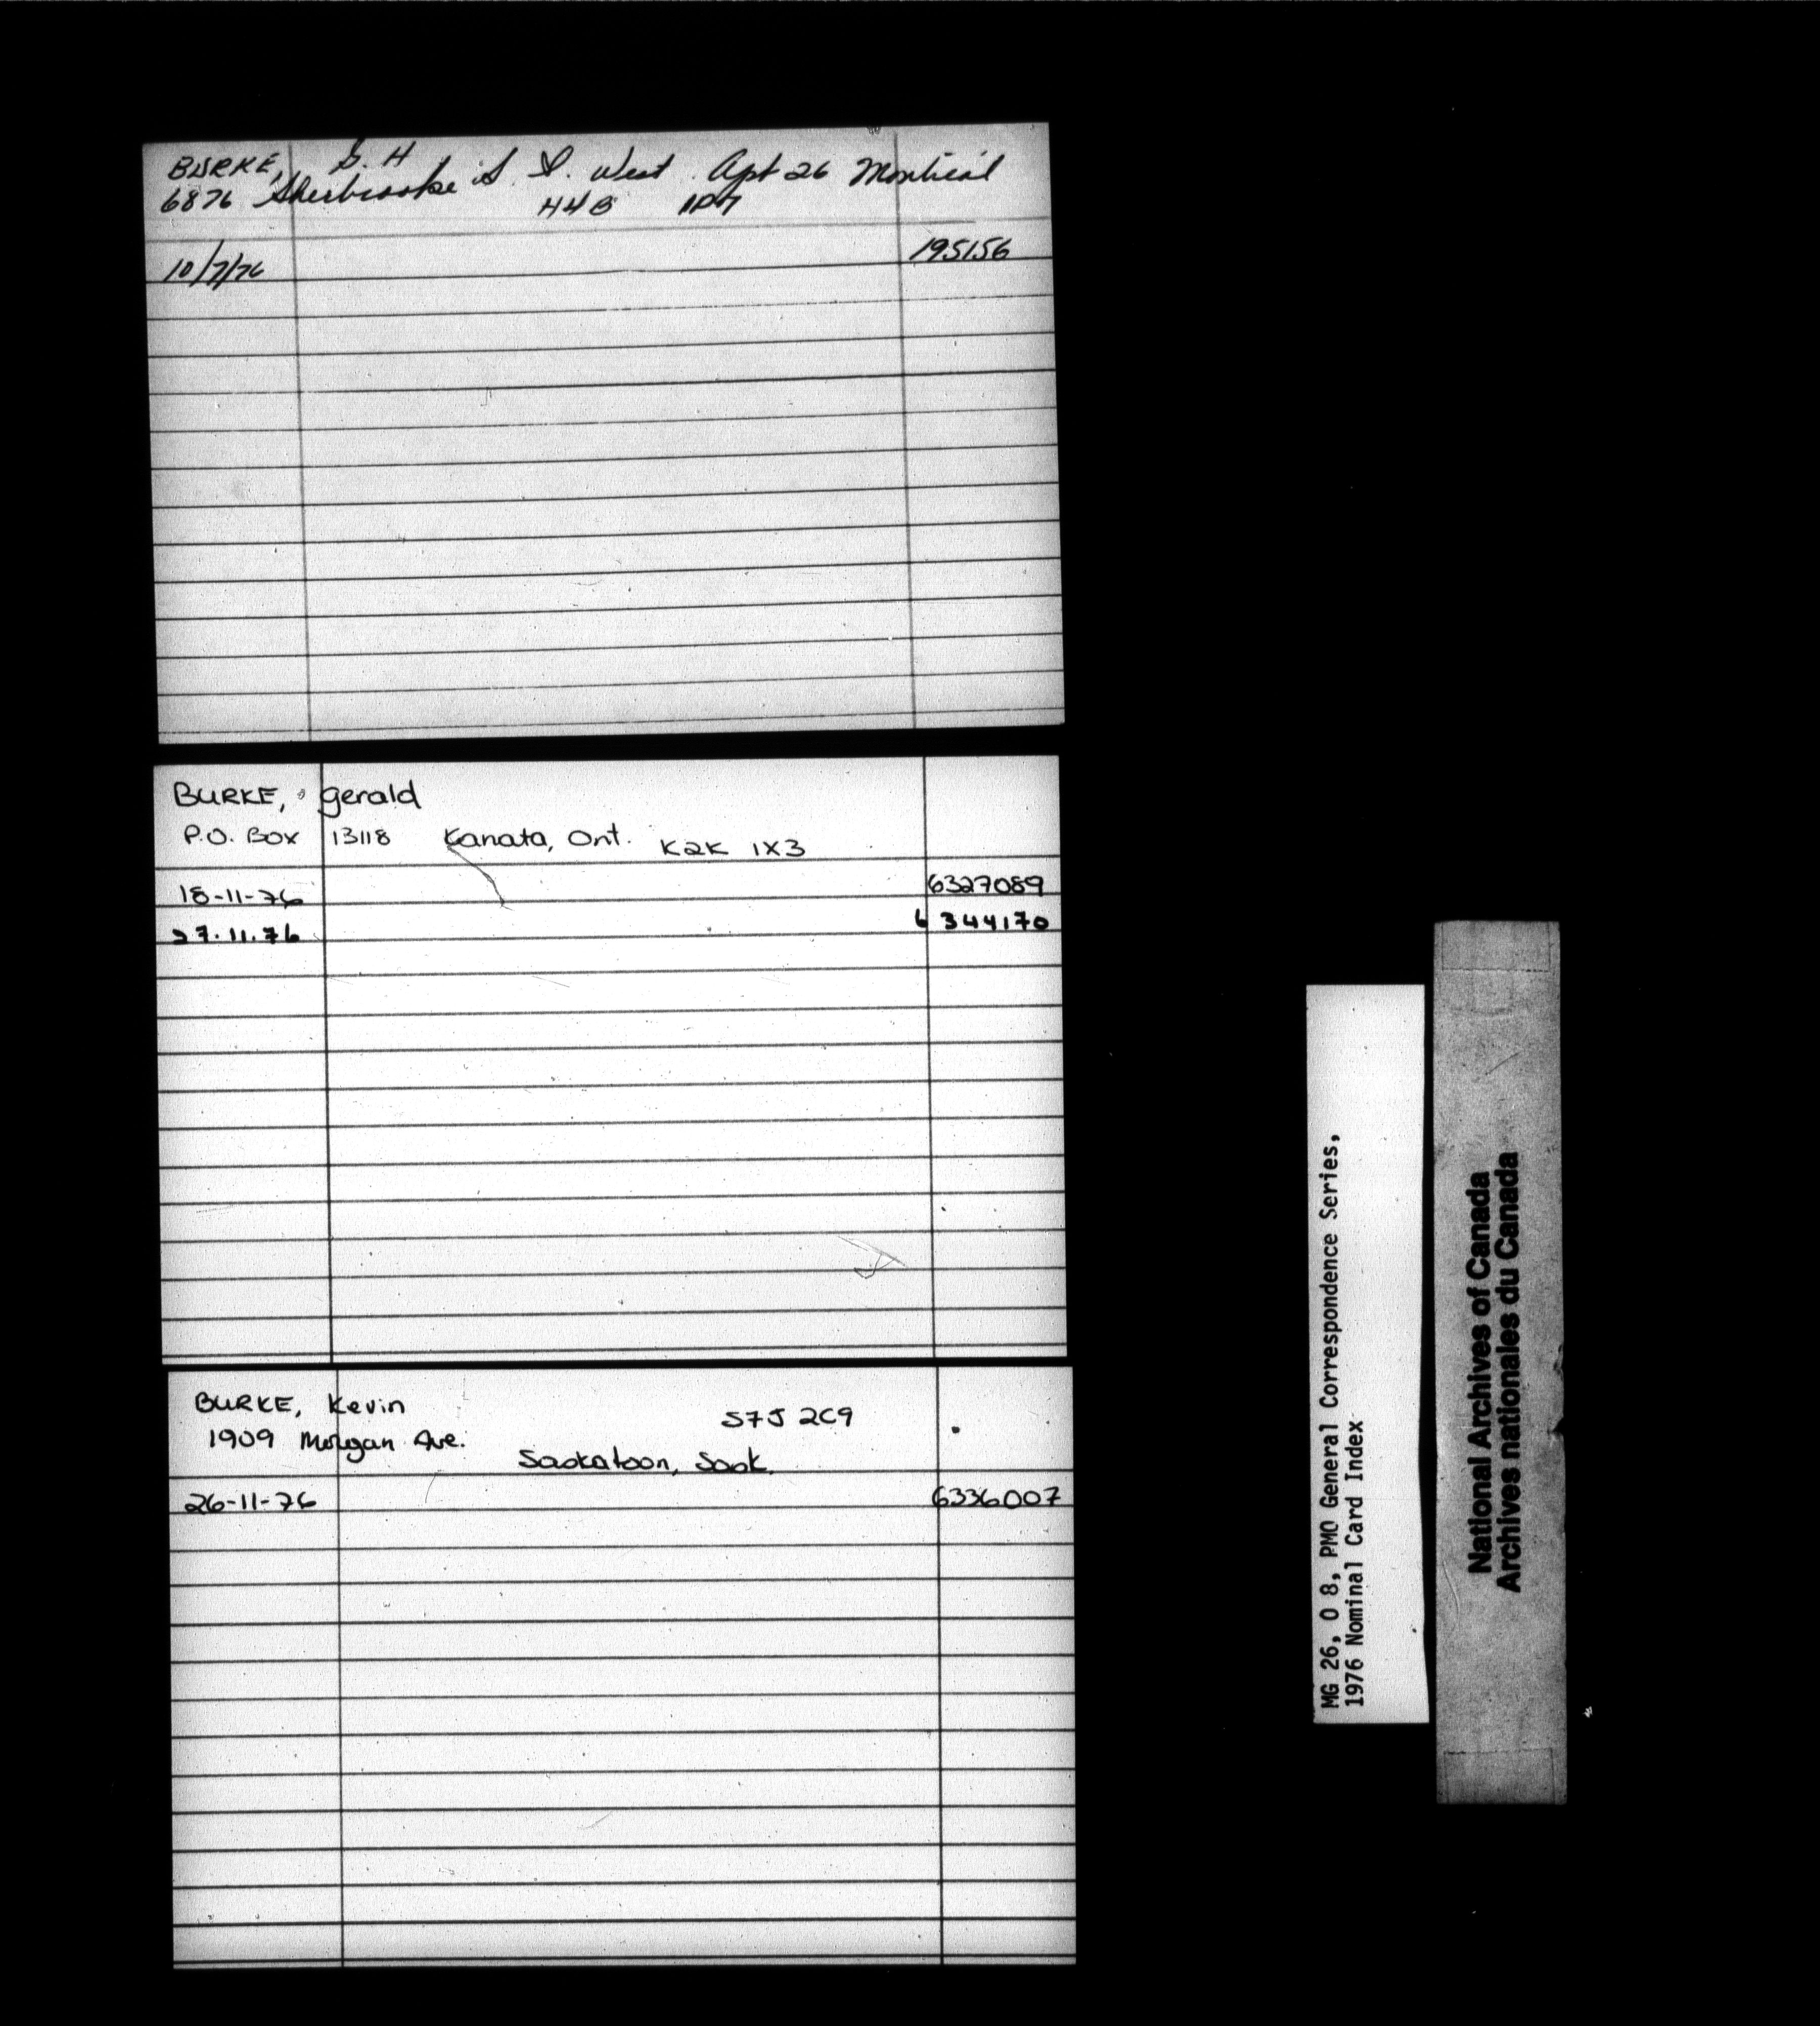 BURKE, G. H
6876 Sherbrooke St. West Apt 26 Montreal
H4B
10/7/76 195156
BURKE, Gerald
P.O. Box 13118 Kanata, Ont. K2K 1X3
18-11-76 6327089
27.11.76 6344170
BURKE, Kevin
S7J 2C9
1909 Morgan Ave.
Saskatoon, Sask.
26-11-76 6336007
MG 26, O 8, PMO General Correspondence Series,
1976 Nominal Card Index
National Archives of Canada
Archives nationales du Canada